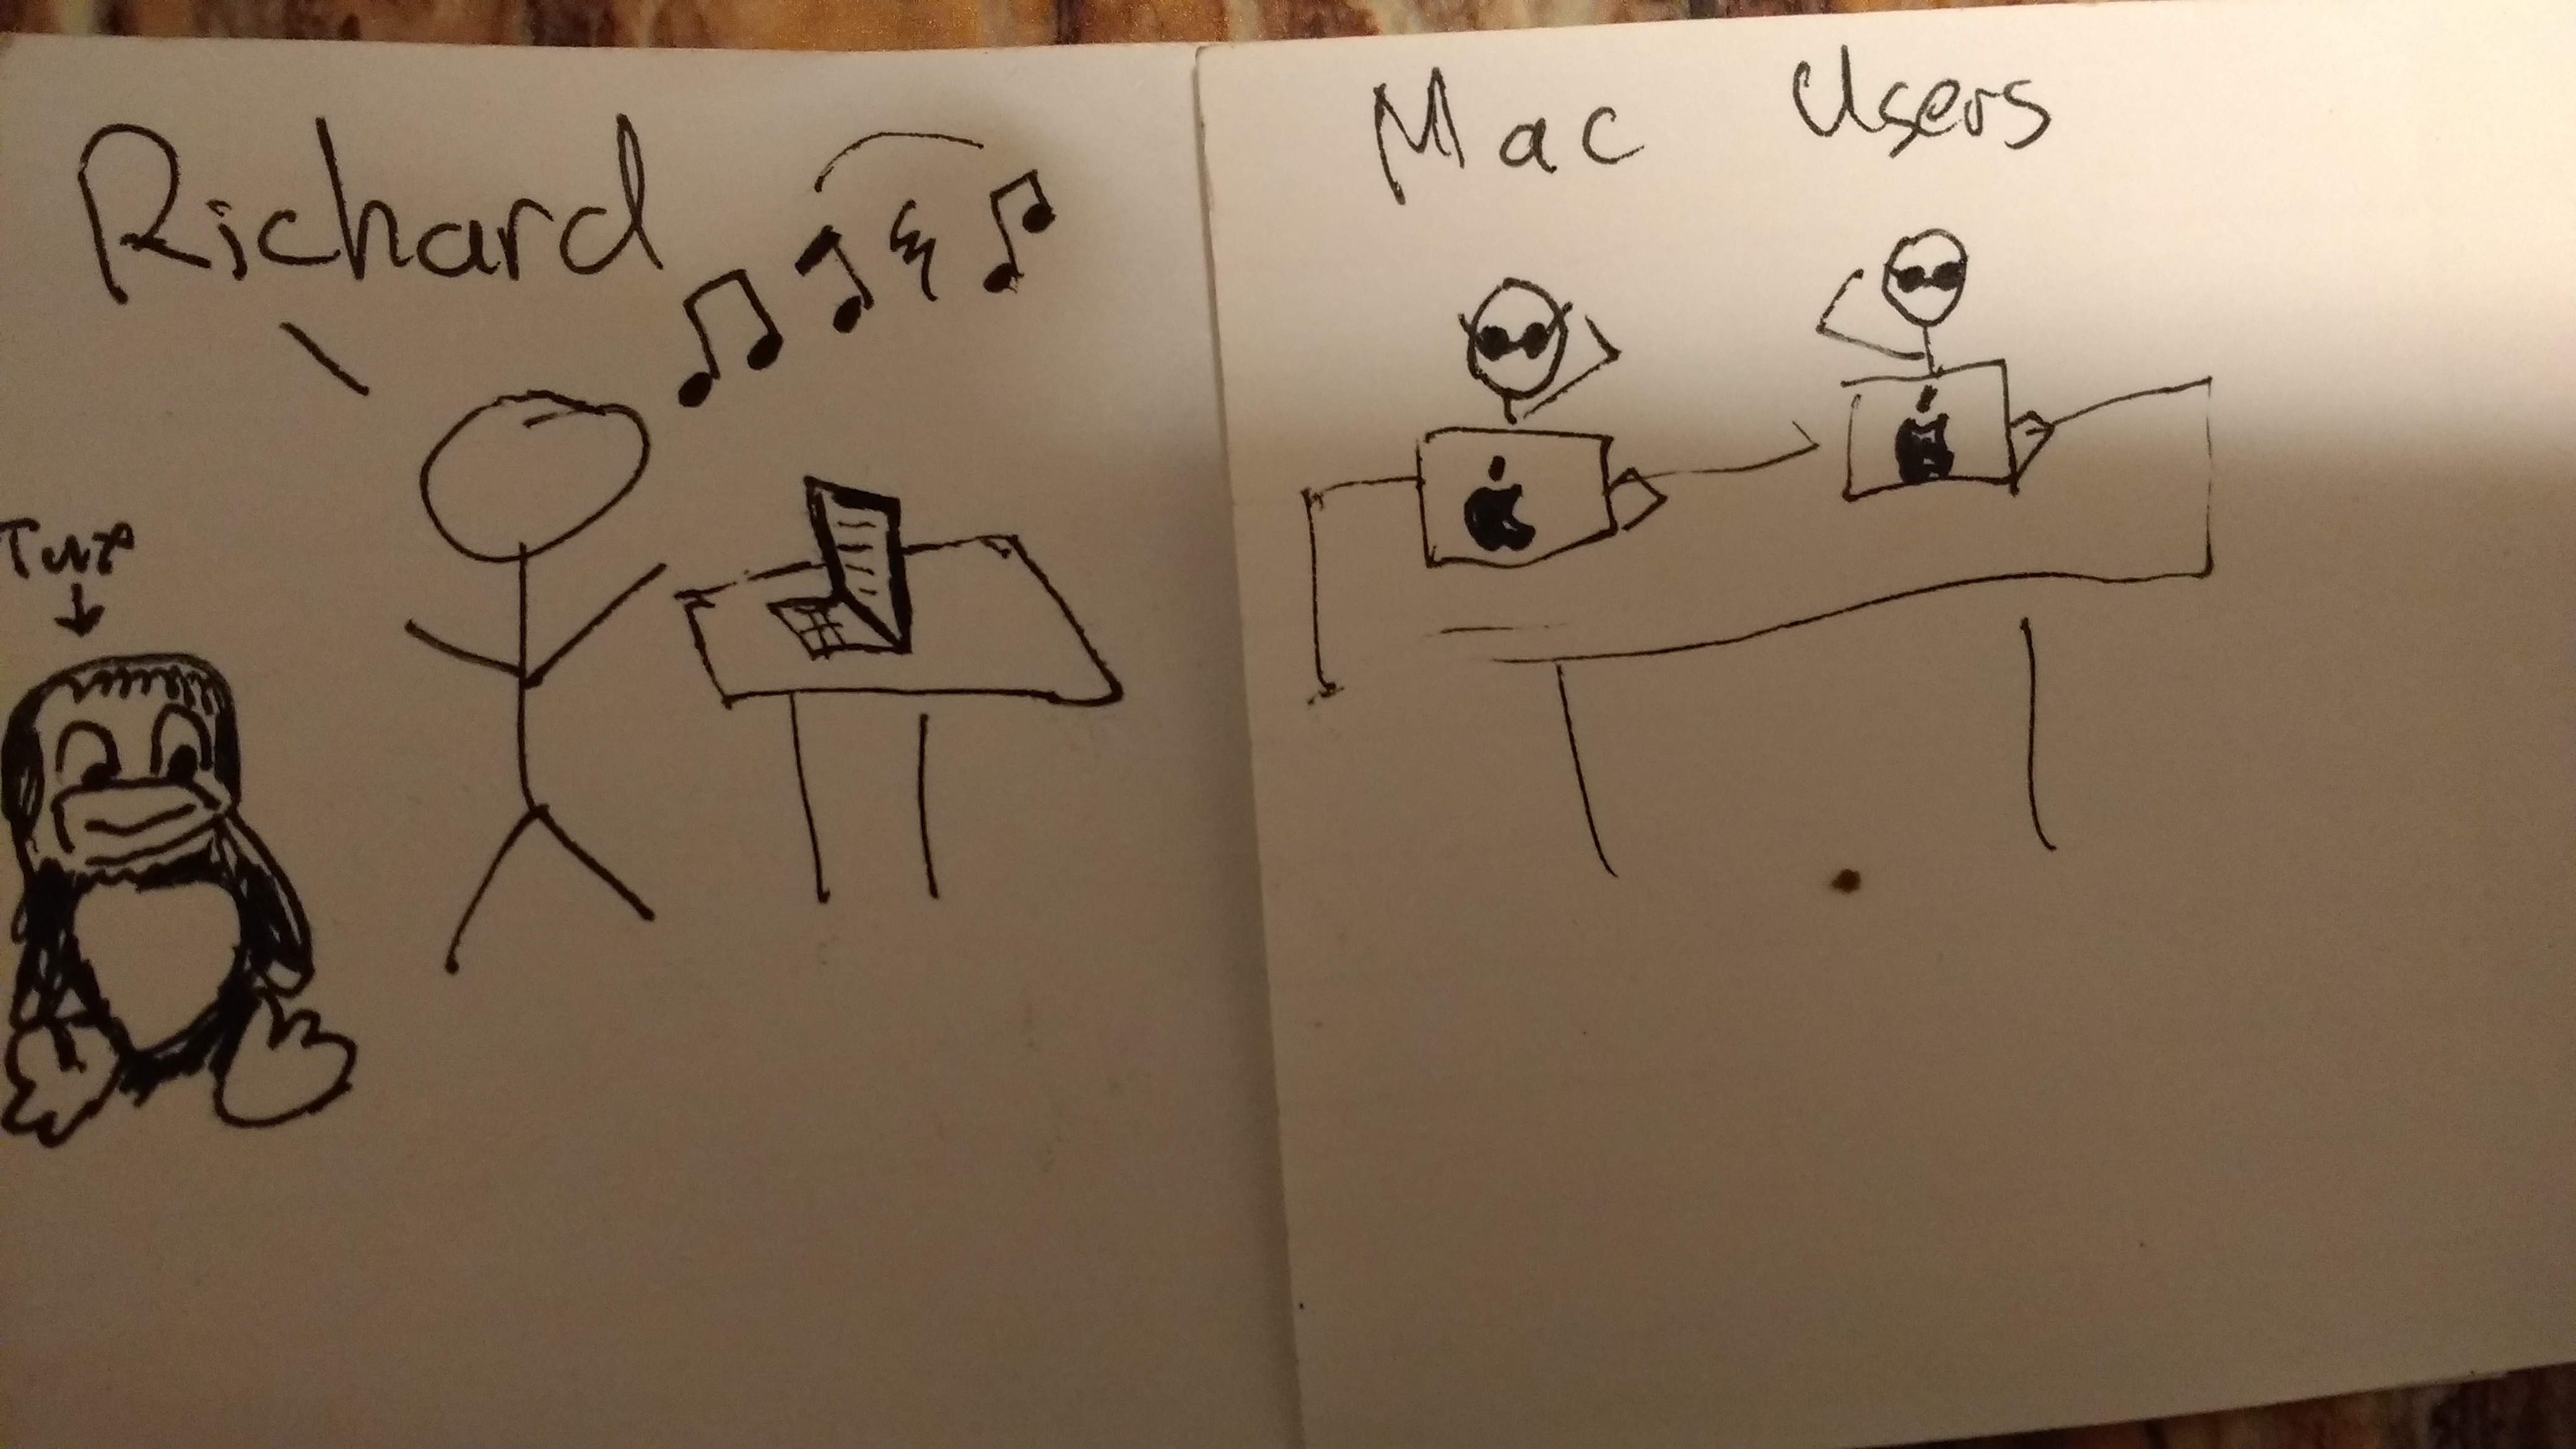 Richard
Tux
Mac Users